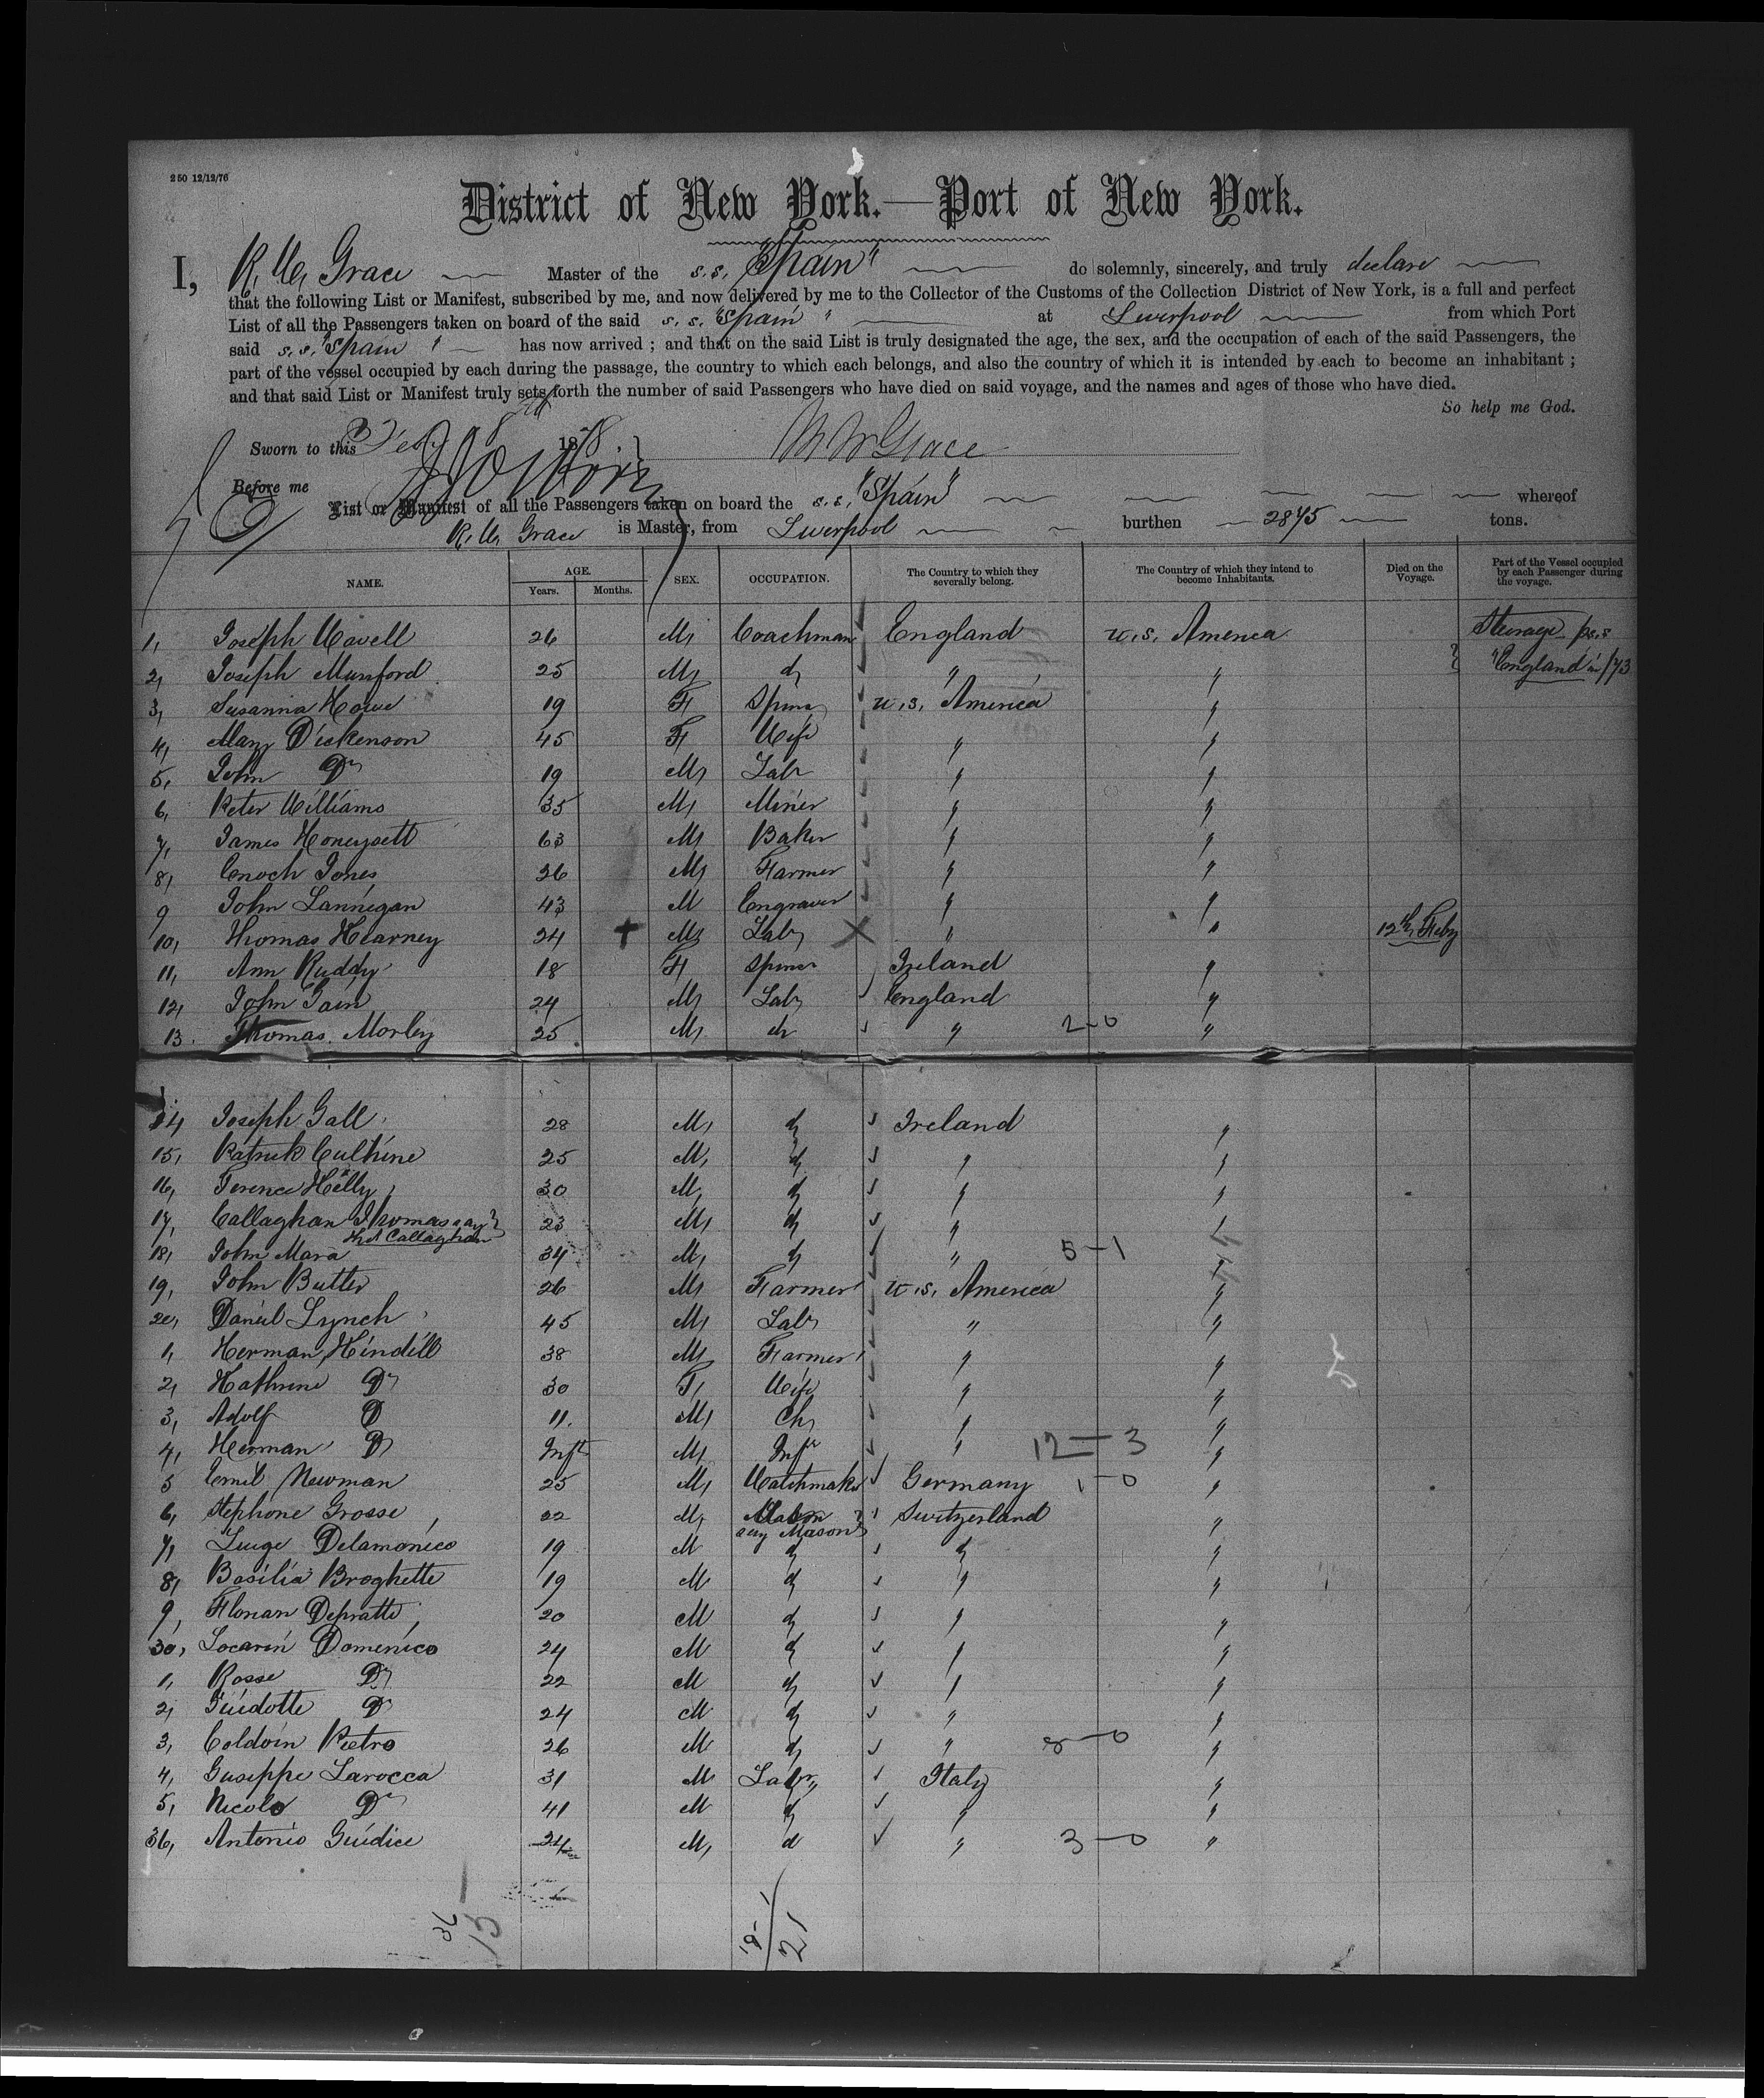 250 12/12/76
District of New York.—Port of New York.
I, R. W. Grace Master of the s.s. "Spain" do solemnly, sincerely, and truly declare
that the following List or Manifest, subscribed by me, and now delivered by me to the Collector of the Customs of the Collection District of New York, is a full and perfect
List of all the Passengers taken on board of the said s. s. "Spain" at Liverpool from which Port
said s. s. "Spain" has now arrived ; and that on the said List is truly designated the age, the sex, and the occupation of each of the said Passengers, the
part of the vessel occupied by each during the passage, the country to which each belongs, and also the country of which it is intended by each to become an inhabitant ;
and that said List or Manifest truly sets forth the number of said Passengers who have died on said voyage, and the names and ages of those who have died.
So help me God.
Sworn to this Feb 1878. R W Grace
Before me
List or Manifest of all the Passengers taken on board the s. s. "Spain" whereof
R. W. Grace is Master, from Liverpool burthen 2875 tons.
NAME. AGE. Years. Months. SEX. OCCUPATION. The Country to which they severally belong. The Country of which they intend to become Inhabitants. Died on the Voyage. Part of the Vessel occupied by each Passenger during the voyage.
1, Joseph 26 M, Coachman England U.S. America Steerage
2, Joseph Munford 25 M, d " " "England" in /73
3, Susanna Howe 19 F, Spins U.S. America "
4, Mary Dickenson 45 F Wife " "
5, John Do 19 M, Labr " "
6, Peter Williams 35 M, Miner " "
7, James Honeysett 63 M Baker " "
8, Enoch Jones 26 M, Farmer " "
9 John Lannegan 43 M Engraver " "
10, Thomas Kearney 24 + M, Labr X " " 12th Feby
11, Ann Ruddy 18 F, Spins Ireland "
12, John Gain 24 M, Labr England "
13. Thomas Morley 25 M, do " 2-0 "
14 Joseph Gall 28 M, do Ireland "
15, Patrick Culhine 25 M, do " "
16, Terence Kelly 30 M, do " "
17, Callaghan Thomas say 23 M, do " "
Ths Callaghan
18, John Mara 34 M, do " 5-1 "
19, John Butler 26 M, Farmer U.S. America "
20, Daniel Lynch 45 M, Labr " "
1, Herman Hindell 38 M, Farmer " "
2, Kathrine Do 30 F, Wife " "
3, Adolf D 11. M, Ch, " "
4, Herman Do Inft M, Inft " 12-3 "
5 Emil Newman 25 M, Watchmaker Germany 1-0 "
6, Stephone Grosse 22 M, Switzerland "
say Mason
7, Luige Delamonico 19 M do do "
8, Basilia Broghette 19 M do " "
9, Florian Depratte 20 M do " "
30, Locarin Domenico 24 M do " "
1, Rosse Do 22 M do " "
2, Guidotte Do 24 M do " "
3, Coldoin Pietro 26 M do " 8-0 "
4, Guseppe Larocca 31 M Labr Italy "
5, Nicolo Do 41 M do " "
36, Antonio Guidice 24 M, d " 3-0 "
36
13
15/21